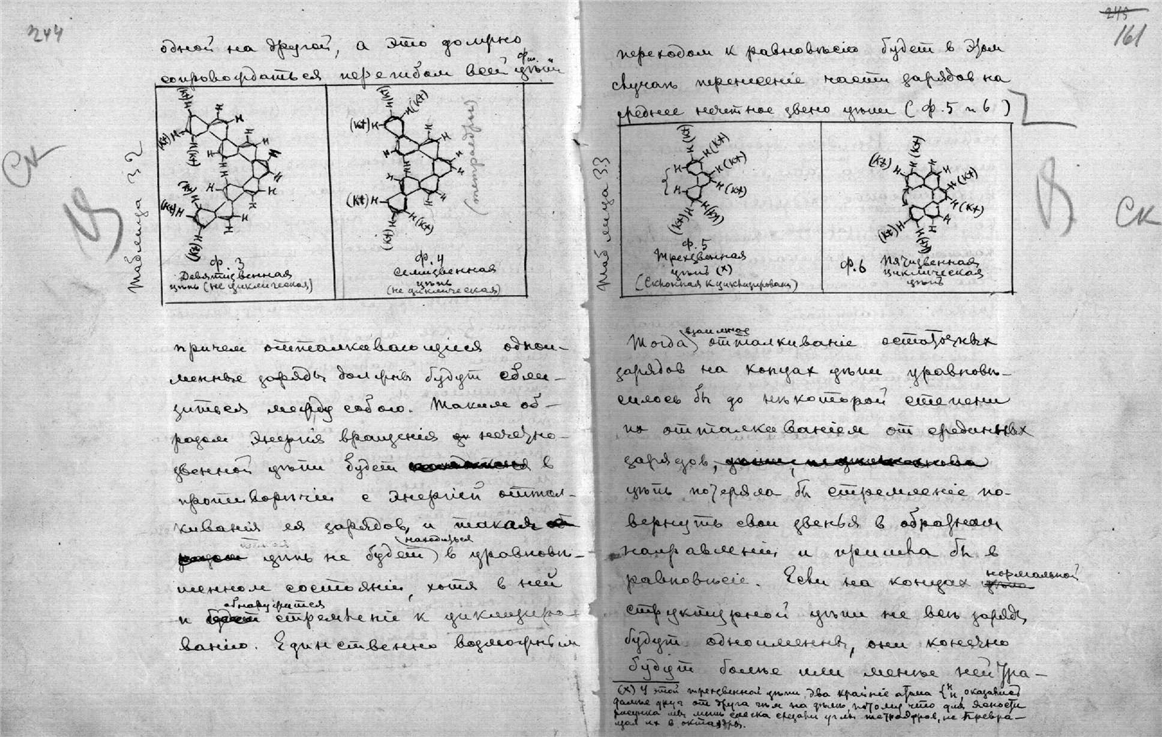 244
одной на другой, а это должно
сопровождаться перегибом всей цѣпи
Таблица 32
(Kt)
Ф. 3
Девятизвенная
цѣпь (не циклическая)
Ф. 4
Семизвенная
цѣпь
(не циклическая)
причем отталкивающіеся однои-
менные заряды должны будут сбли-
зиться между собою. Таким об-
разом энергія вращенія нечетно-
звенной цѣпи будет в
противорѣчіи с энергіей оттал-
киванія ея зарядов, и такая
цѣпь не будет находиться в уравновѣ-
шенном состояніи, хотя в ней
и обнаружится стремленіе к циклизиро-
ванію. Единственно возможным
СК
161
переходом к равновѣсію будет в этом
случаѣ перенесеніе части зарядов на
среднее нечетное звено цѣпи (Ф. 5 и 6)
Таблица 33
Ф. 5
Трехзвенная
цѣпь (x)
(Склонная к циклизированію)
Ф. 6 Пятизвенная
циклическая
цѣпь
СК
Тогда взаимное отталкиваніе остаточных
зарядов на концах цѣпи уравновѣ-
силось бы до нѣкоторой степени
их отталкиваніем от срединных
зарядов,
цѣпь потеряла бы стремленіе по-
вернуть свои звенья в обратном
направленіи и пришла бы в
равновѣсіе. Если на концах нормальной
структурной цѣпи не всѣ заряды
будут одноименны, они конечно
будут болѣе или менѣе нейтра-
(x) У этой трехзвенной цѣпи два крайніе атома H оказались
дальше друг от друга чѣм на дѣлѣ, потому что для ясности
рисунка мы лишь слегка срѣзали углы тетраэдров, не превра-
щая их в октаэдры.